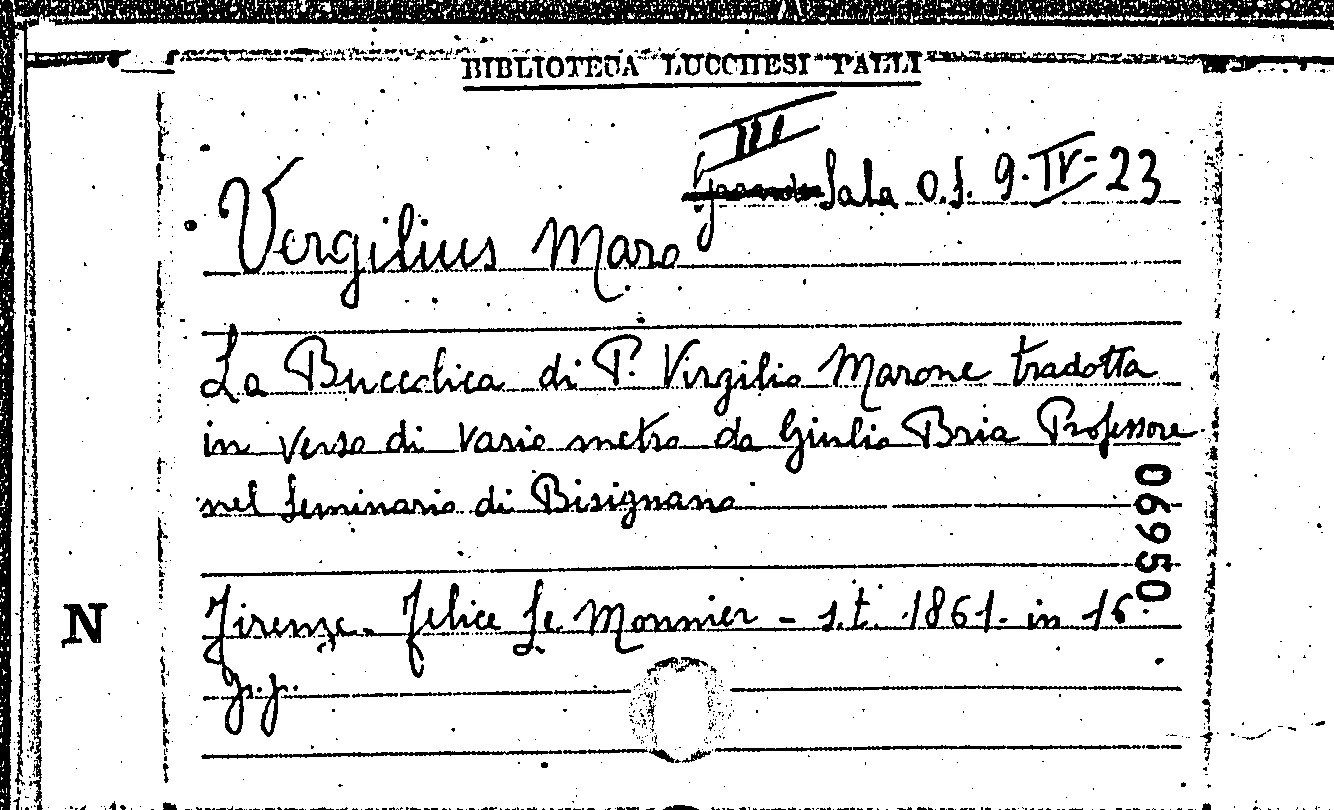 BIBLIOTECA LUCCHESI PALLI
III
Sala O.S. 9.IV-23
Vergilius Maro
La Buccolica di P. Virgilio Marone tradotta
in verso di vario metro da Giulio Bria Professore
nel Seminario di Bisignano
06950
N
Firenze. Felice Le Monnier - s.t. 1861. in 16°